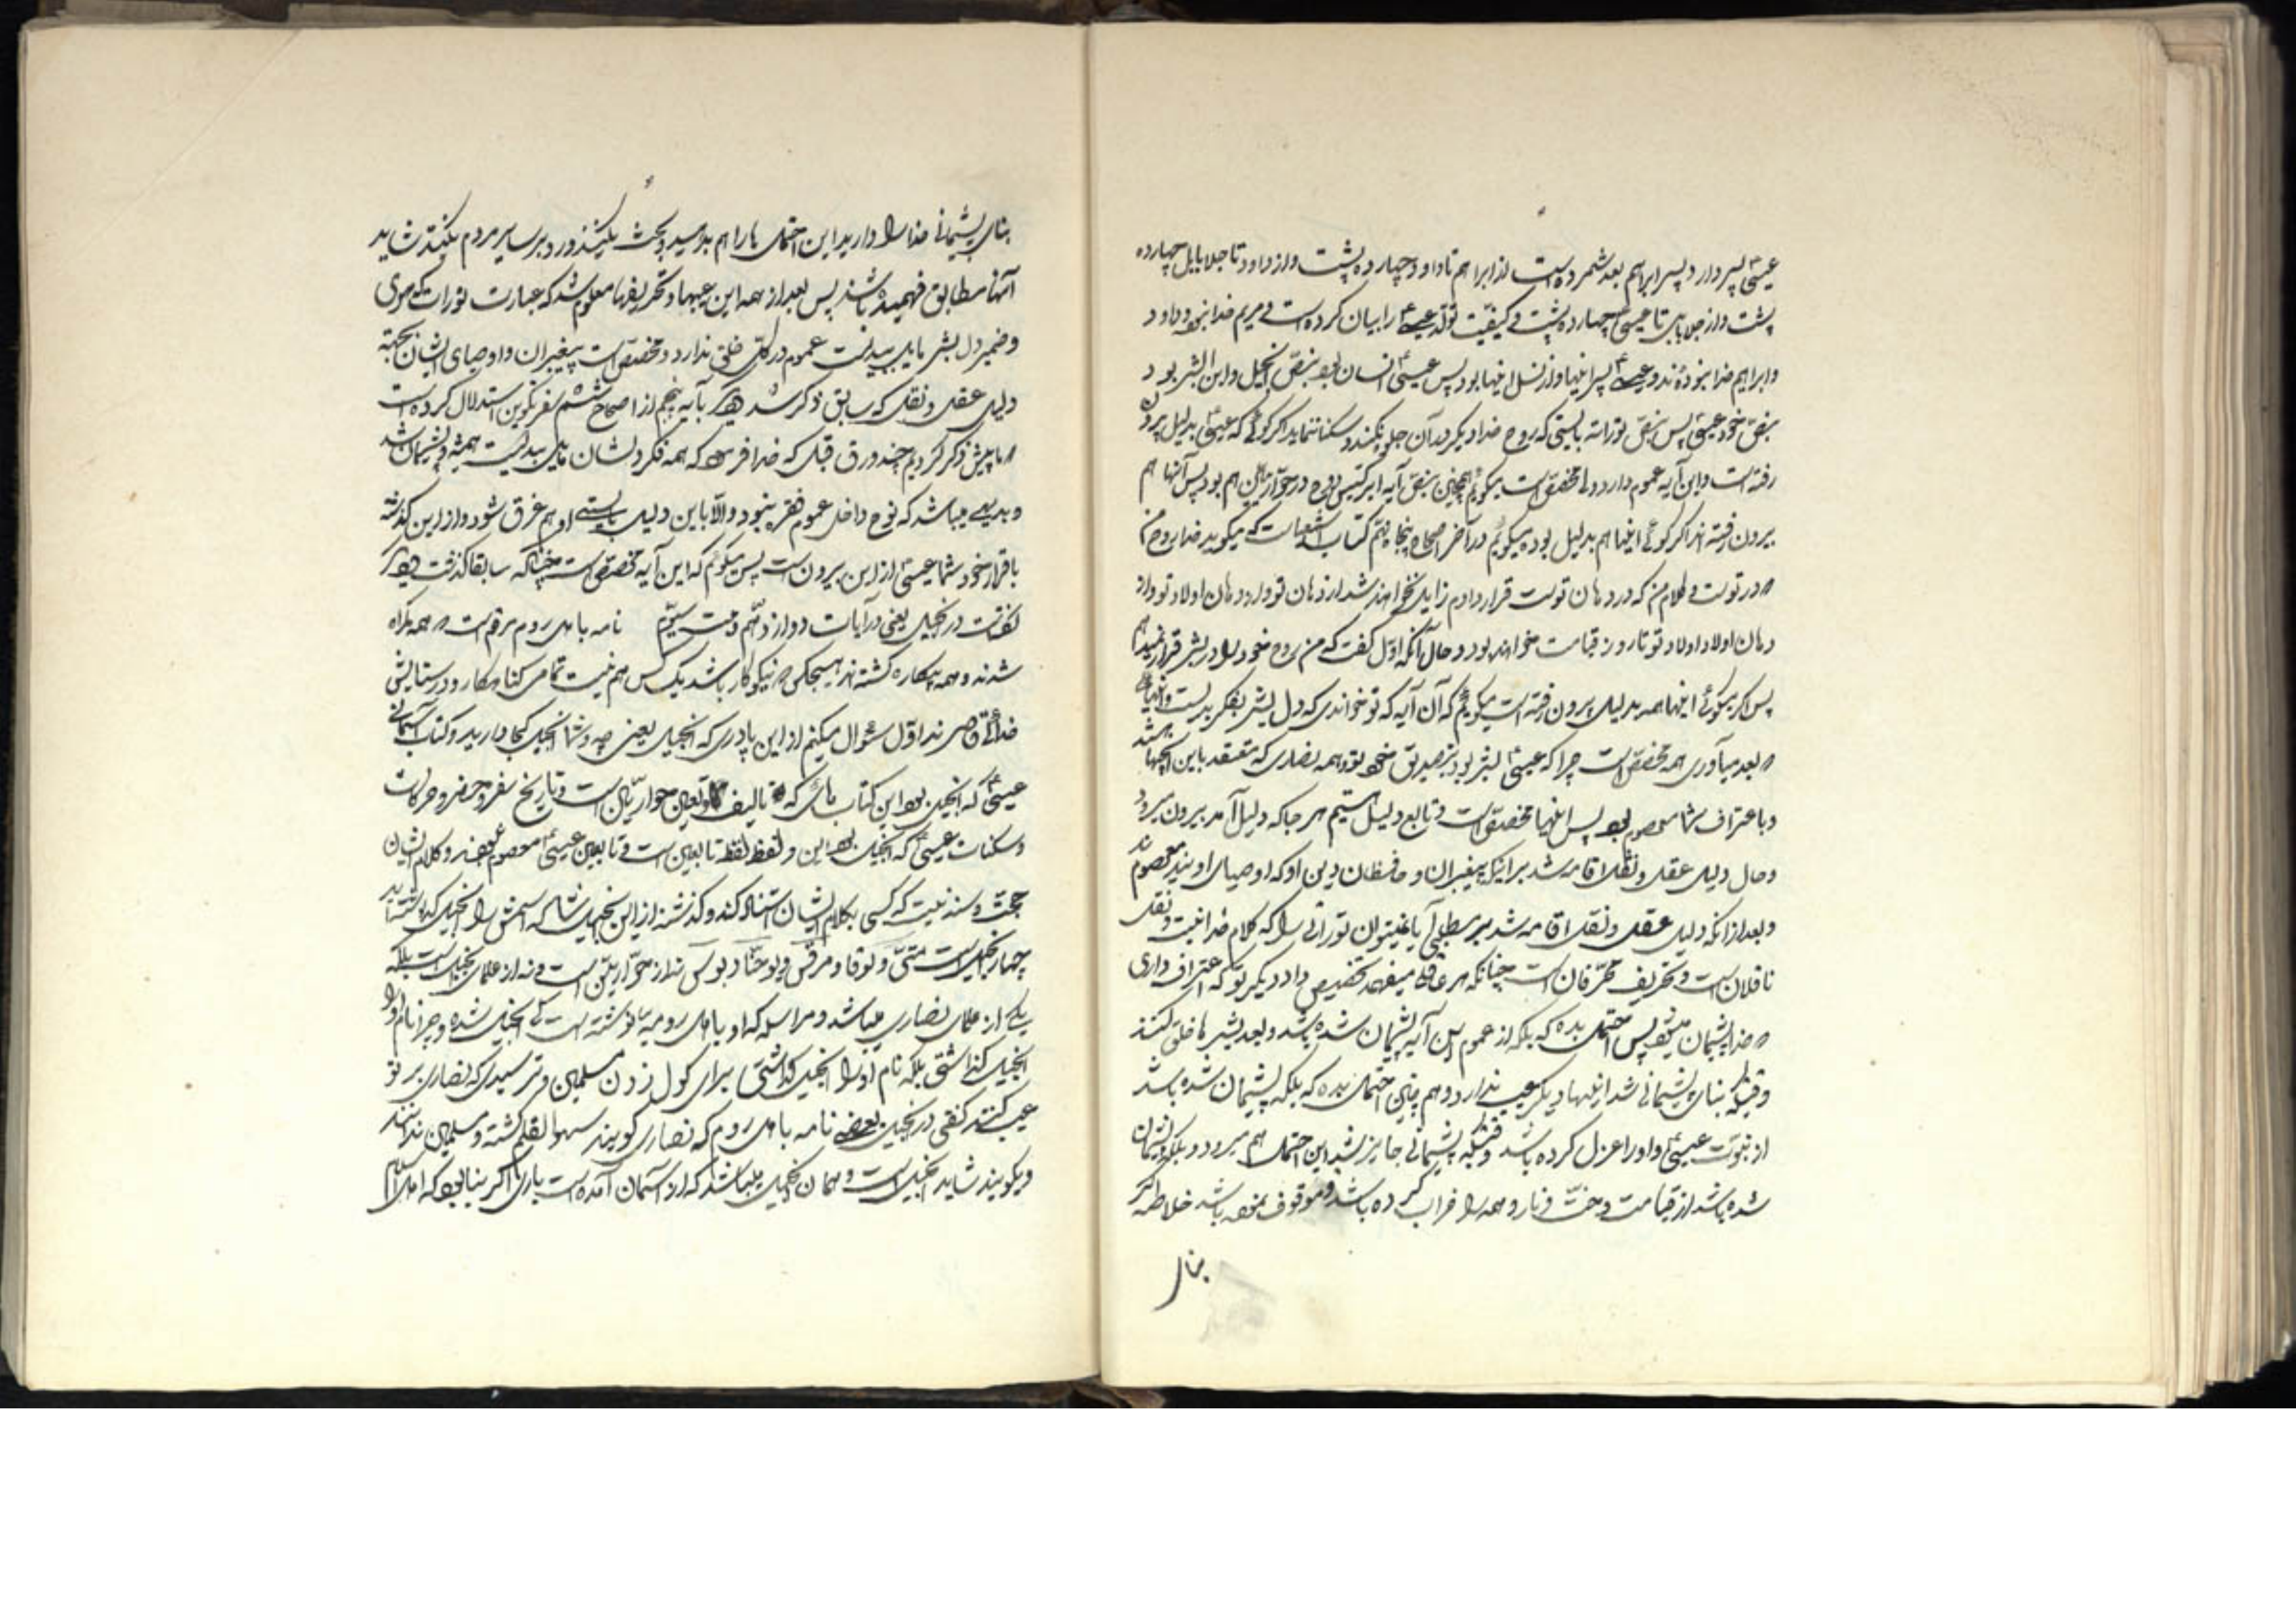 عیسیٰ پسر داود پسر ابراهیم بعد شمرده است از ابراهیم تا داود چهارده پشت و از داود تا جلا بابل چهارده
پشت و از جلا بابل تا عیسی چهارده پشت و کیفیت تولد عیسی را بیان کرده است و مریم خدا نبود و داود
و ابراهیم خدا نبوده‌اند و عیسی پسر اینها و از نسل اینها بود پس عیسی انسان بود بنص انجیل و ابن البشر بود
بنص خود عیسی پس بنص توراته بایستی که روح خدا دیگر در آن جلوه نکند و سکنا ننماید اگر گوئی که عیسی بدلیل بیرون
رفته است و این آیه عموم دارد ولی مخصص است میگویم همچنین بنص آیه ابرکتیس روح در حواریین هم بود پس آنها هم
بیرون رفته‌اند اگر گوئی اینها هم بدلیل بوده میگویم در آخر اصحاح پنجاه نهم کتاب اشعیاست که میگوید خدا روح من
در تو است و کلام من که در دهان تو است قرار دادم زایل نخواهند شد از دهان تو و از دهان اولاد تو و از
دهان اولاد اولاد تو تا روز قیامت خواهند بود و حال آنکه اول گفت که من روح خود را در بشر قرار نمیدهم
پس اگر میگوئی اینها همه بدلیل بیرون رفته است میگویم که آن آیه که تو خواندی که دل بشر بفکر بد است و اینها
بعد میآوری همه مخصص است چرا که عیسی بشر بود بتصدیق خود تو و همه نصاری که معتقد باین انجیلها هستند
و باعتراف شما معصوم بود پس اینها مخصص است و تابع دلیل هستیم هر جا که دلیل آمد بیرون میرود
و حال دلیل عقلی و نقلی اقامه شد بر اینکه پیغمبران و حافظان دین او که اوصیای اویند معصومند
و بعد از آنکه دلیل عقلی و نقلی اقامه شد بر مطلبی آیا نمیتوان توراتی را که کلام خدا نیست و نقل
ناقلان است و تحریف محرفان است چنانکه هر عاقلی میفهمد تخصیص داد دیگر تو که اعتراف داری
خدا پشیمان میشود پس احتمال بده که بلکه از عموم این آیه پشیمان شده باشد و بعد بشر ها خلق کند
وقتیکه بنای پشیمانی شد اینها دیگر عیب ندارد و هم چنین احتمال بده که بلکه پشیمان شده باشد
از نبوت عیسی و او را عزل کرده باشد وقتیکه پشیمانی جایز شد این احتمال هم میرود و بلکه پشیمان
شده باشد از قیامت و جنت و نار و همه را خراب کرده باشد و موقوف نموده باشد خلاصه اگر
بنای
بنای پشیمانی خدا را دارید این احتمال ها را هم بدهید و بحث نکنید و رد بر سایر مردم نکنید شاید
آنها مطابق فهمیده باشند پس بعد از همه این عیبها و تحریفها معلوم شد که عبارت تورات که هوی
و ضمیر دل بشر مایل ببدیست عموم در کل خلق ندارد و مخصص است پیغمبران و اوصیای ایشان بجهة
دلیل عقلی و نقلی که سابق ذکر شد بآیه پنجم از اصحاح ششم سفر تکوین استدلال کرده است
ما پیش ذکر کردیم چند ورق قبل که خدا فرمود که همه فکر دلشان مایل ببدیست همیشه و پشیمان شد
و بدیهی میباشد که نوح داخل عموم فقره نبود و الا باین دلیل بایستی او هم غرق شود و از این گذشته
باقرار خود شما عیسی از این بیرون است پس میگویم که این آیه مخصص است چنانکه سابقا گذشت
گفته است در انجیل یعنی در آیات دوازدهم و بیست سیّوم نامه باهل روم مرقوم است همه گمراه
شدند و همه بیکاره گشته‌اند هیچکس نیکوکار باشد یک کس هم نیست تمامی گناهکار و در ستایش
خدائی قاصرند اول سئوال میکنم از این پادری که انجیل یعنی چه و شما انجیل کجا دارید و کتاب آسمانی
عیسی که انجیل بود این کتاب هائی که تالیف تابعین حواریین است و تاریخ سفر و حضر و حرکات
و سکنات عیسی که انجیل نبود این و لفظ لفظ تابعین است و تابعین عیسی معصوم نبودند و کلام ایشان
حجت و سند نیست که کسی بکلام ایشان استناد کند و گذشته از این انجیل شما که اسمش را انجیل گذاشته‌اید
چهار انجیل است متی و لوقا و مرقس و یوحنا و بولس نه از حواریین است و نه از علمای انجیل است بلکه
یکی از علمای نصاری میباشد و مراسله که او باهل رومیه نوشته است کی انجیل شده و چرا نام او را
انجیل گذاشتی بلکه نام او را انجیل گذاشتی برای گول زدن مسلمین و ترسیدی که نصاری بر تو
عیب کنند گفتی در انجیل یعنی نامه باهل روم که نصاری گویند سهو القلم گشته و مسلمین ندانند
و بگویند شاید انجیل است و همان انجیل میباشد که از آسمان آمده است باری اگر بنا بود که اهل اسلام